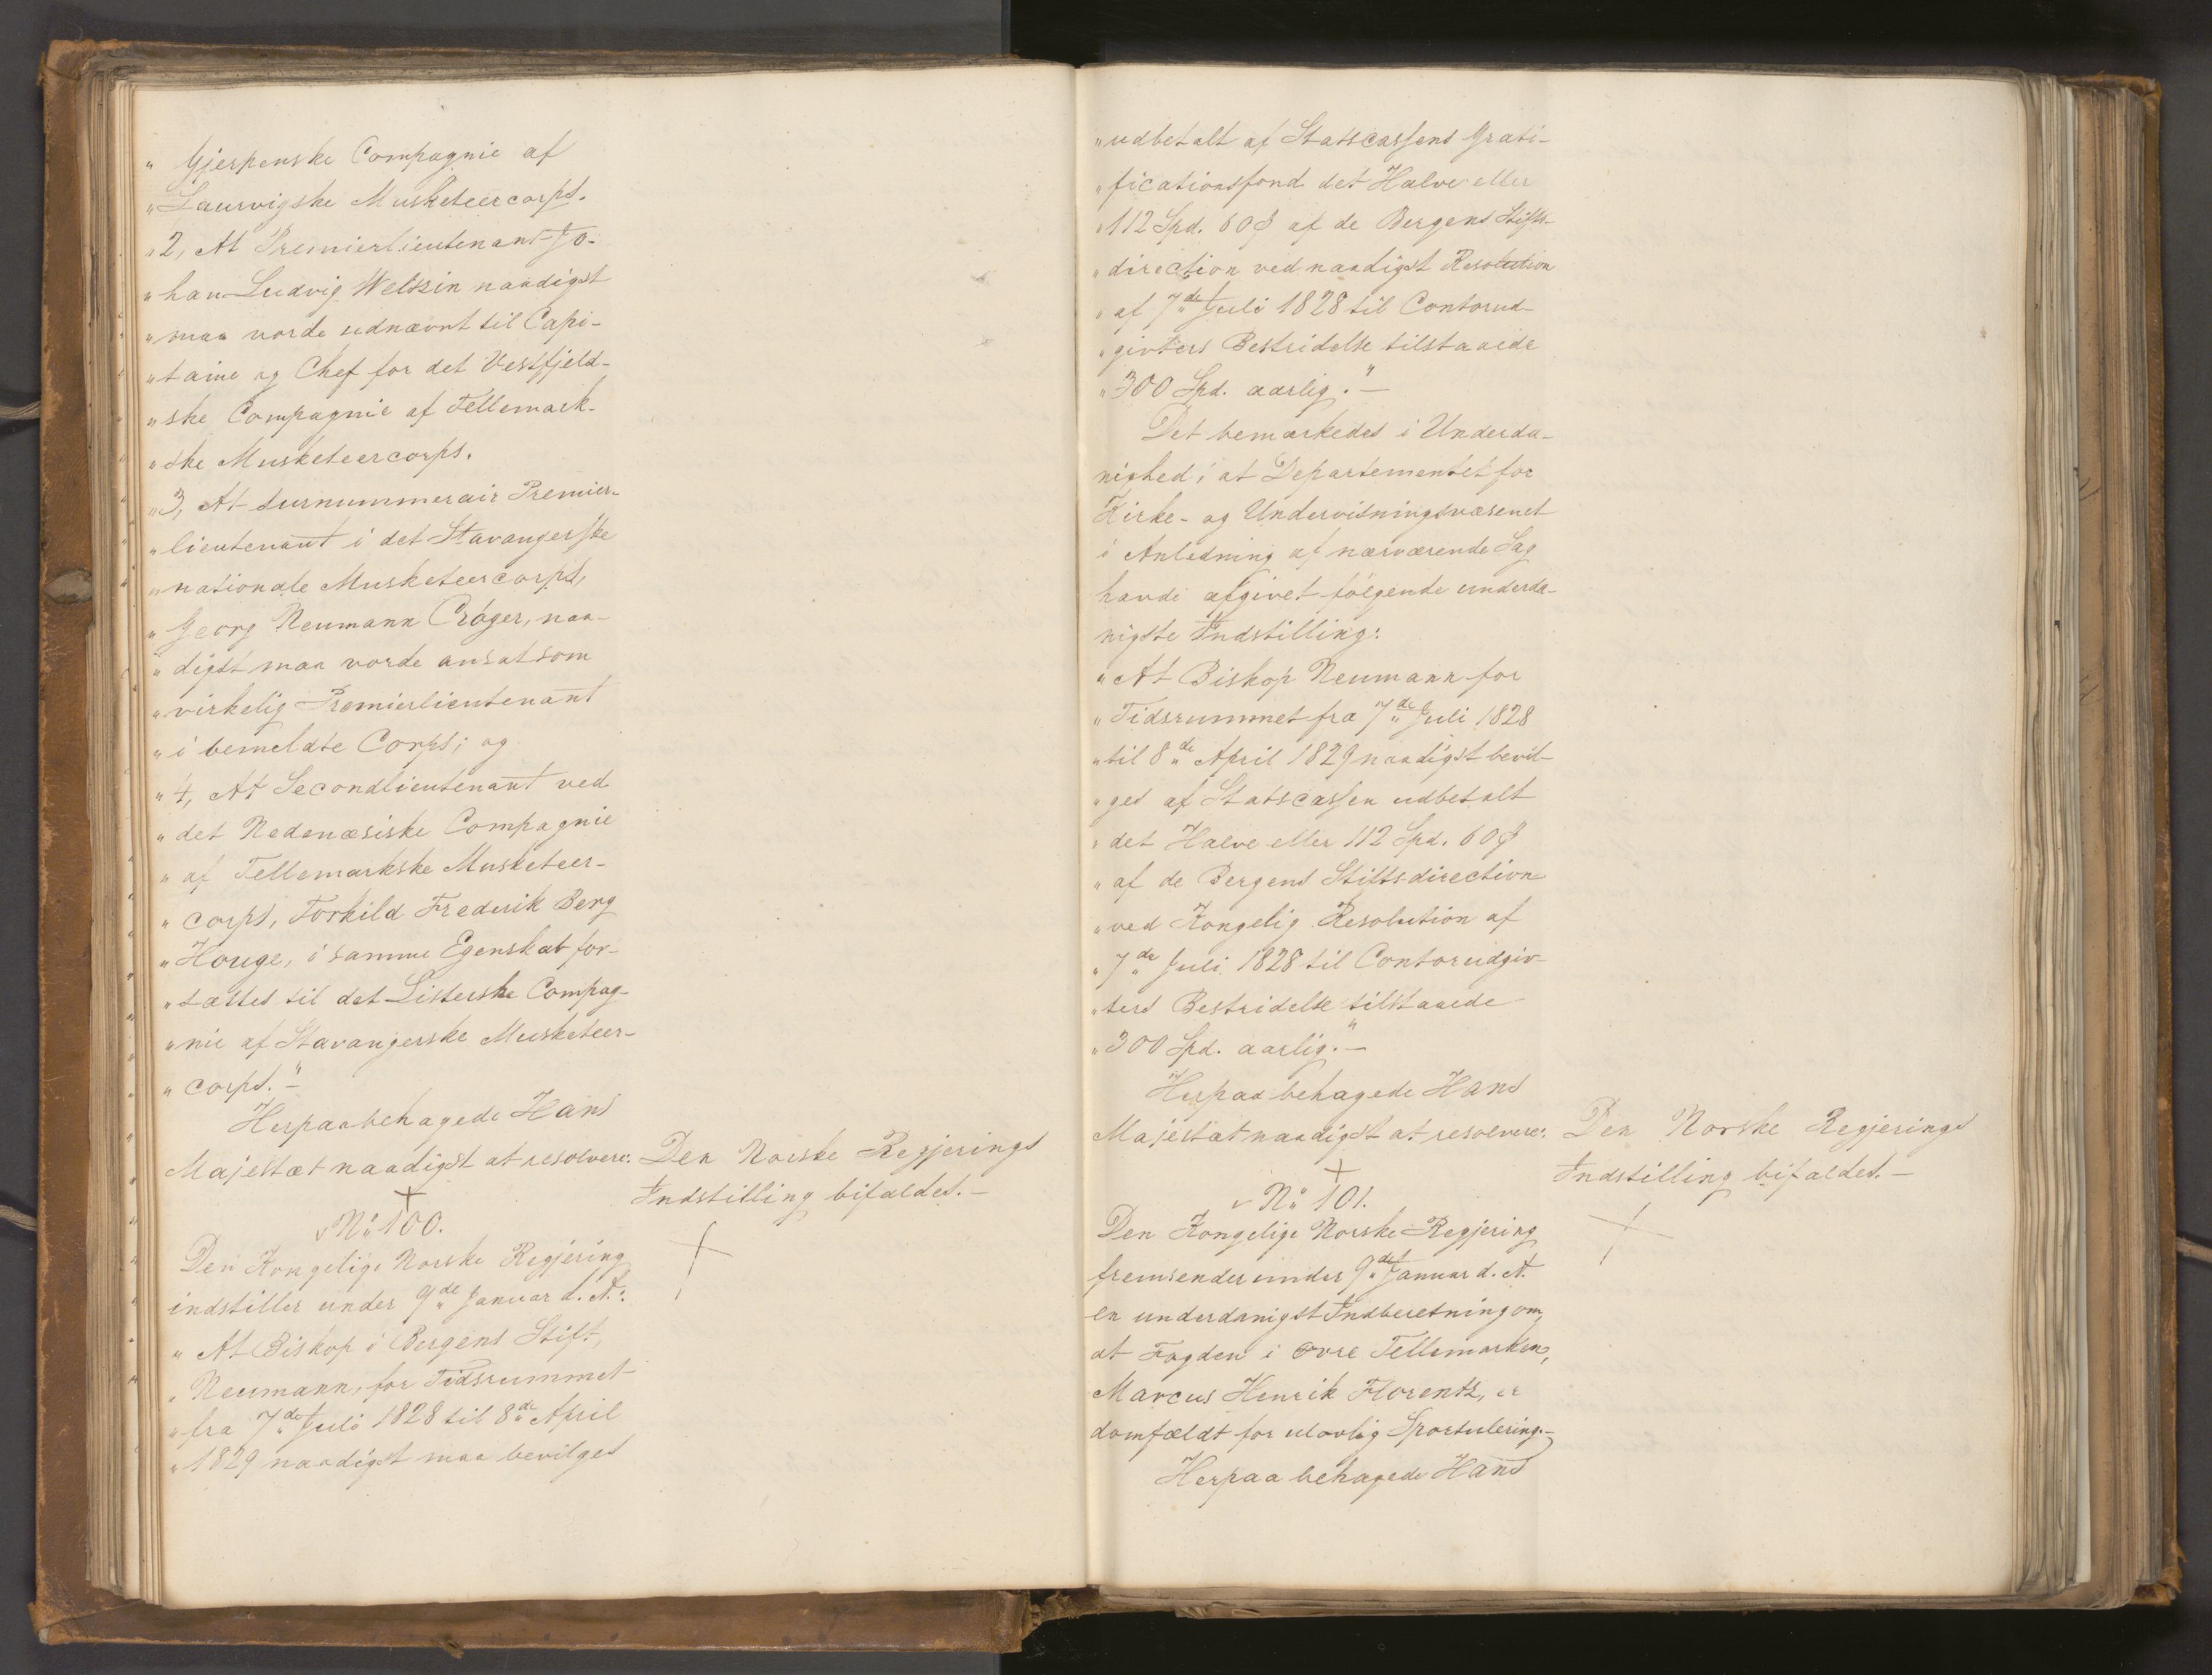 " Gjerpenske Compagnie af
" Laurvigske Musketeercorps.
" 2, At Premierlieutenant Jo-
" han Ludvig Weltzin naadigst
" maa vorde udnævnt til Capi-
" taine og Chef for det Vestfjeld-
" ske Compagnie af Tellemark-
" ske Musketeercorps.
" 3, At surnummerair Premier-
" lieutenant i det Stavangerske
" nationale Musketeercorps,
" Georg Neumann Crøger, naa-
" digst maa vorde ansat som
" virkelig Premierlieutenant
" i bemeldte Corps; og
" 4, At Secondlieutenant ved
" det Nedenæsiske Compagnie
" af Tellemarkske Musketeer-
" corps, Torkild Frederik Berg
" Houge, i samme Egenskab for-
" sættes til det Listerske Compag-
" nie af Stavangerske Musketeer-
" corps." -
Herpaa behagede Hans
Majestæt naadigst at resolvere: Den Norske Regjerings
Indstilling bifaldes. -
No 100.
Den Kongelige Norske Regjering
indstiller under 9de Januar d. A.:
" At Biskop i Bergens Stift,
" Neumann, for Tidsrummet
" fra 7de Juli 1828 til 8de April
" 1829 naadigst maa bevilges
" udbetalt af Statscassens Grati-
" ficationsfond det Halve eller
" 112 Spd. 60 β af de Bergens Stifts-
" direction ved naadigst Resolution
" af 7de Juli 1828 til Contorud-
" givters Bestridelse tilstaaede
" 300 Spd. aarlig." -
Det bemærkedes i Underda-
nighed, at Departementet for
Kirke- og Undervisningsvæsenet
i Anledning af nærværende Sag
havde afgivet følgende underda-
nigste Indstilling:
" At Biskop Neumann for
" Tidsrummet fra 7de Juli 1828
" til 8de April 1829 naadigst bevil-
" ges af Statscassen udbetalt
" det Halve eller 112 Spd. 60 β
" af de Bergens Stiftsdirection
" ved Kongelig Resolution af
" 7de Juli 1828 til Contorudgiv-
" ters Bestridelse tilstaaede
" 300 Spd. aarlig." -
Herpaa behagede Hans
Majestæt naadigst at resolvere: Den Norske Regjerings
Indstilling bifaldes. -
No 101.
Den Kongelige Norske Regjering
fremsender under 9de Januar d. A.
en underdanigst Indberetning om,
at Fogden i øvre Tellemarken,
Marcus Henrik Florentz, er
domfældt for ulovlig Sportulering. -
Herpaa behagede Hans